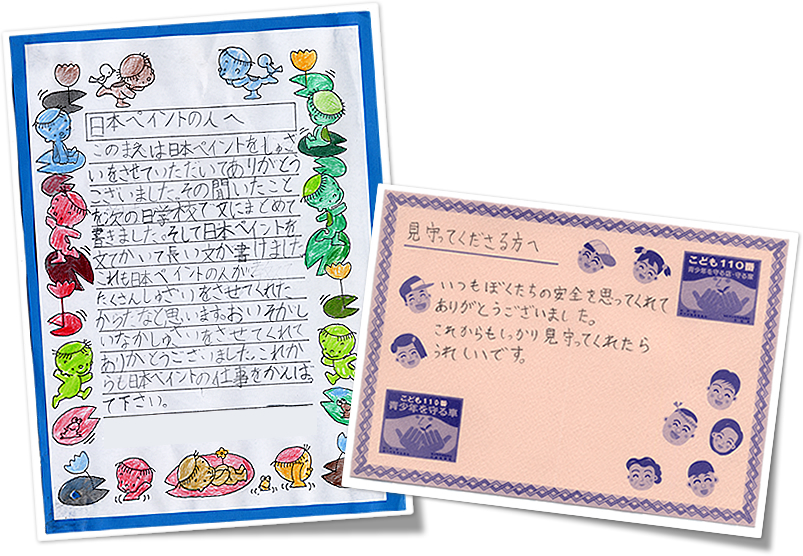 日本ペイントの人へ
このまえは日本ペイントをしゅざ
いをさせていただいてありがとう
ございました。その聞いたこと
を次の日学校で文にまとめて
書きました。そして日本ペイントを
文でかいて長い文が書けました
これも日本ペイントの人が、
たくさんしゅざいをさせてくれた
からだなと思います。おいそがし
いなかしゅざいをさせてくれて
ありがとうございました。これか
らも日本ペイントの仕事をがんば
て下さい。
見守ってくださる方へ
いつもぼくたちの安全を思ってくれて
ありがとうございました。
これからもしっかり見守ってくれたら
うれしいです。
こども110番
青少年を守る店・守る家
こども110番
青少年を守る車